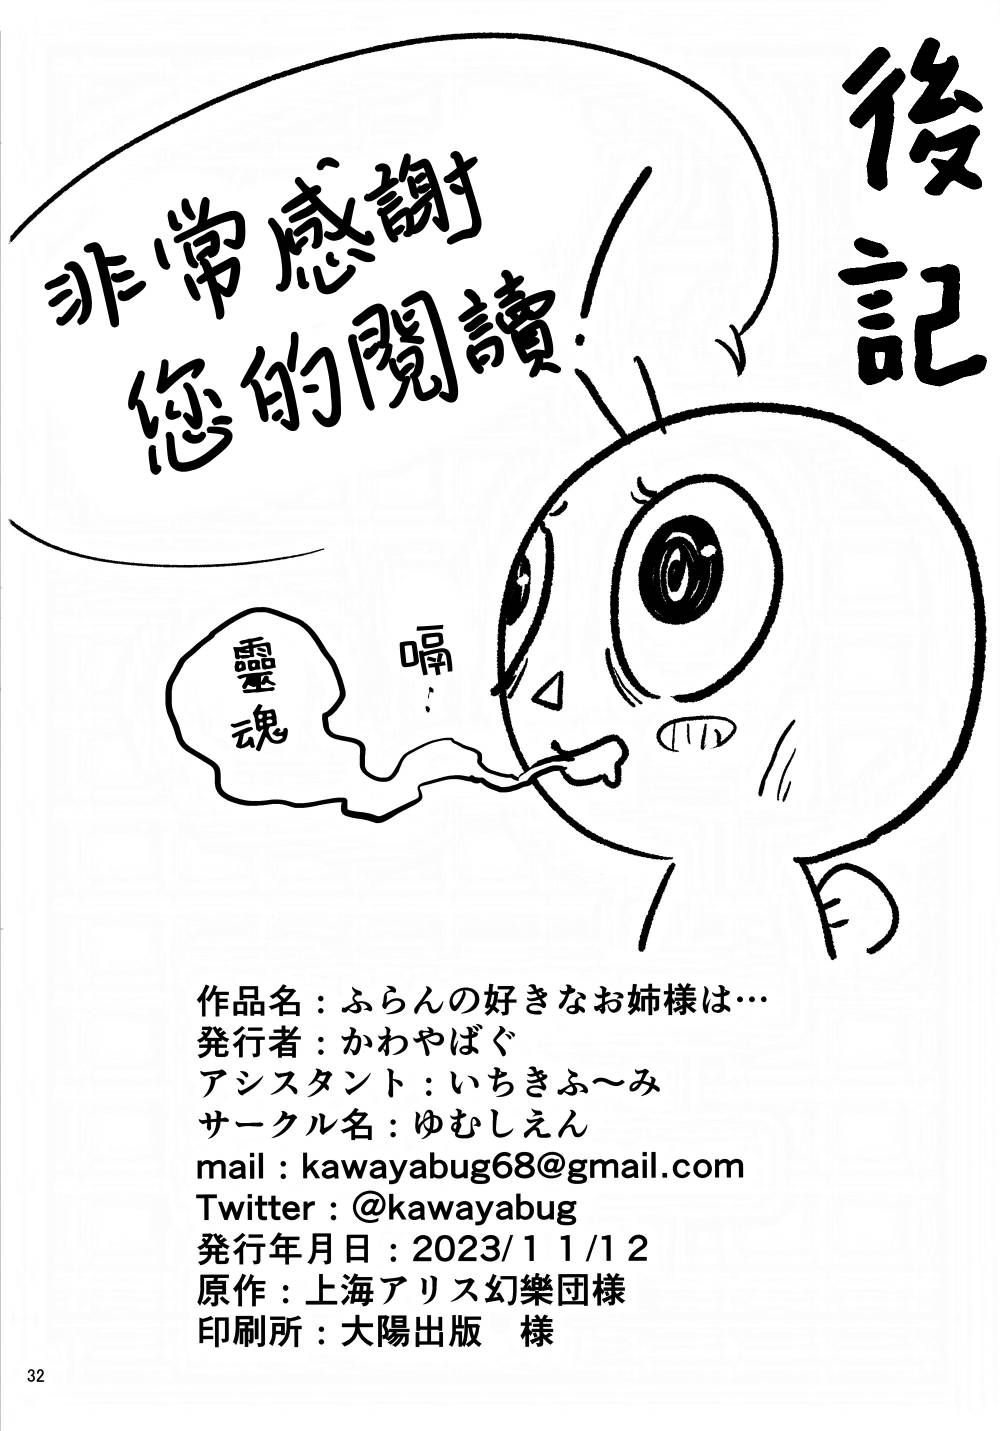 後記
非常感謝
您的閱讀!
嗝…
靈魂
作品名：ふらんの好きなお姉様は…
発行者：かわやばぐ
アシスタント：いちきふ～み
サークル名：ゆむしえん
mail：kawayabug68@gmail.com
Twitter：@kawayabug
発行年月日：2023/１１/１２
原作：上海アリス幻樂団様
印刷所：大陽出版　様
32